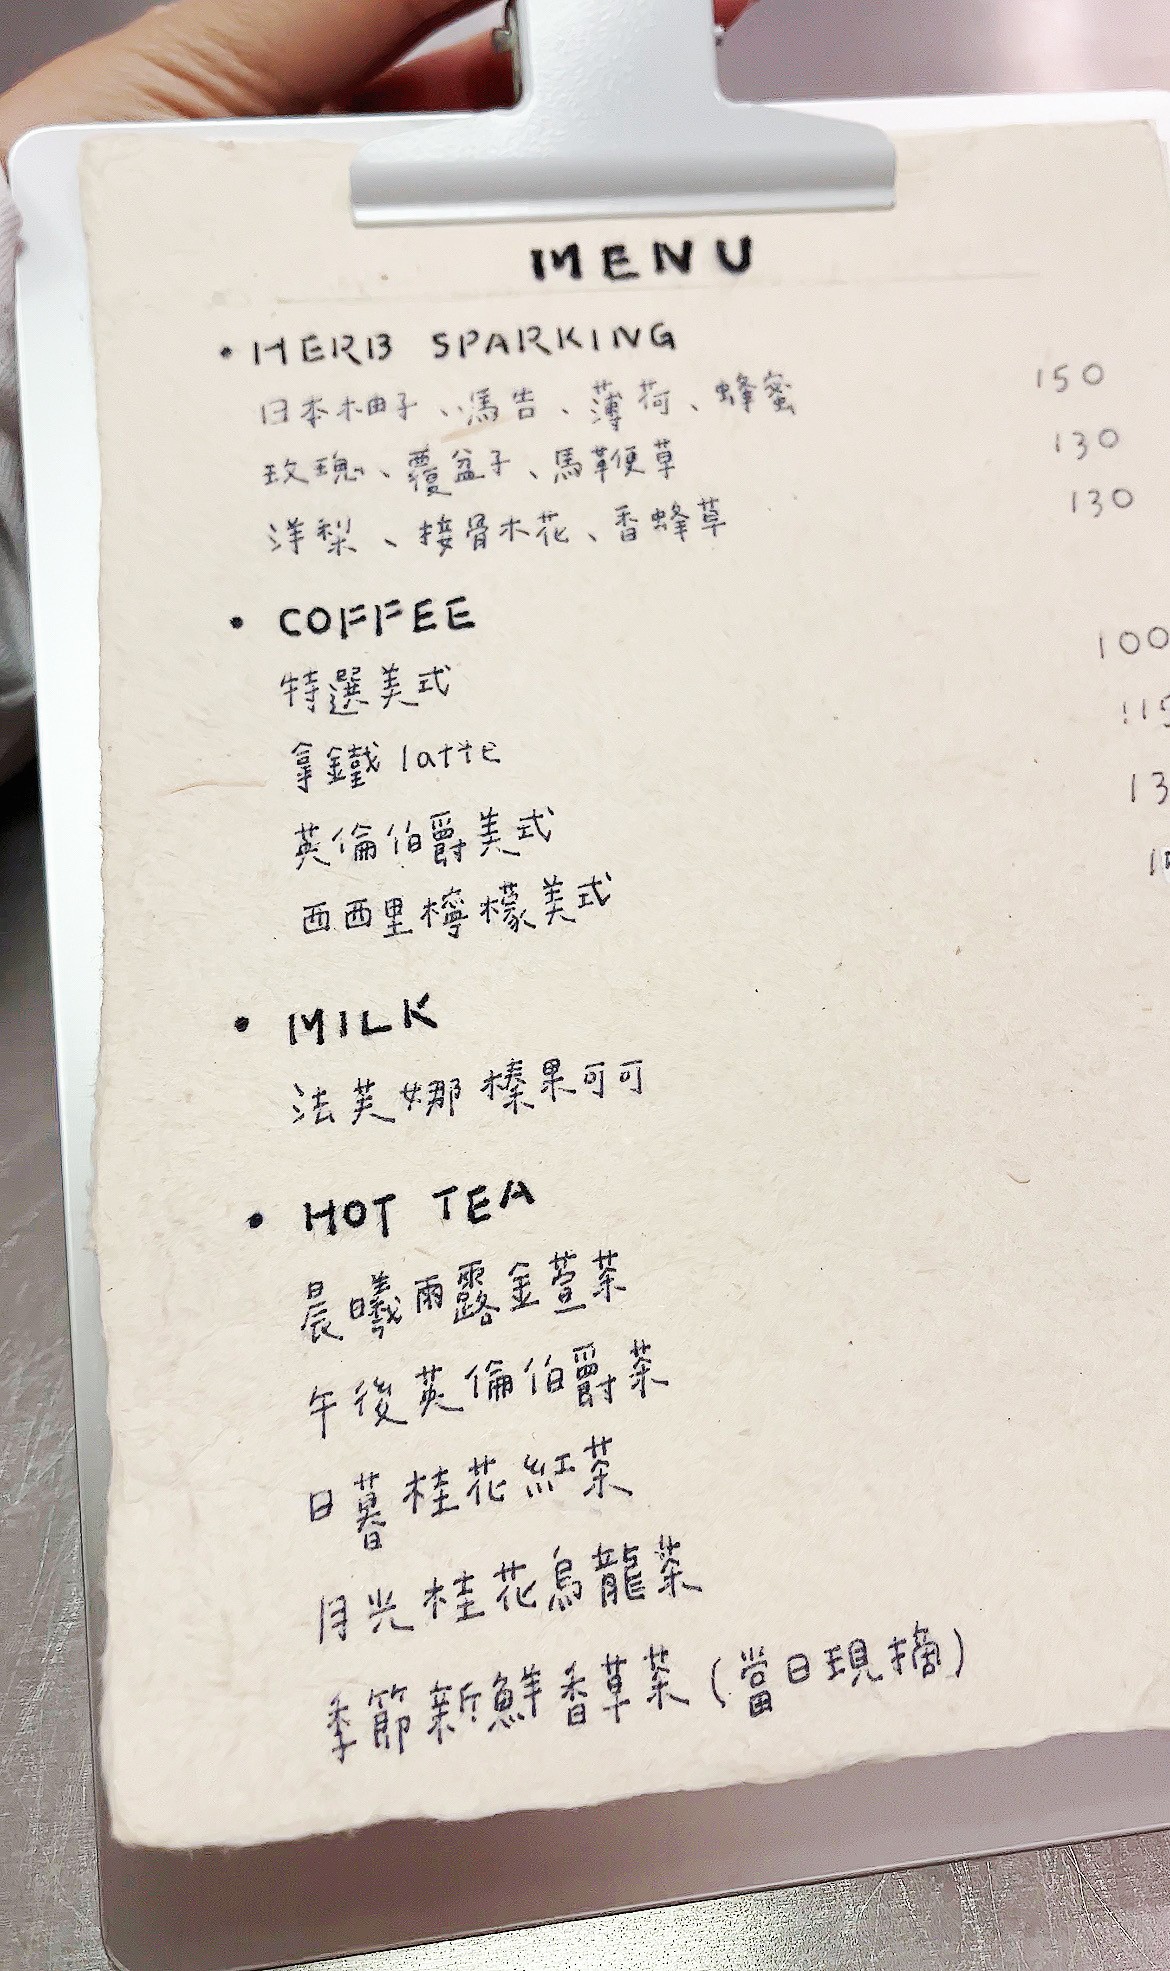 MENU
• HERB SPARKING
日本柚子、馬告、薄荷、蜂蜜 150
玫瑰、覆盆子、馬鞭草 130
洋梨、接骨木花、香蜂草 130
• COFFEE
特選美式 100
拿鐵 latte 115
英倫伯爵美式 13
西西里檸檬美式
• MILK
法芙娜榛果可可
• HOT TEA
晨曦雨露金萱茶
午後英倫伯爵茶
日暮桂花紅茶
月光桂花烏龍茶
季節新鮮香草茶(當日現摘)